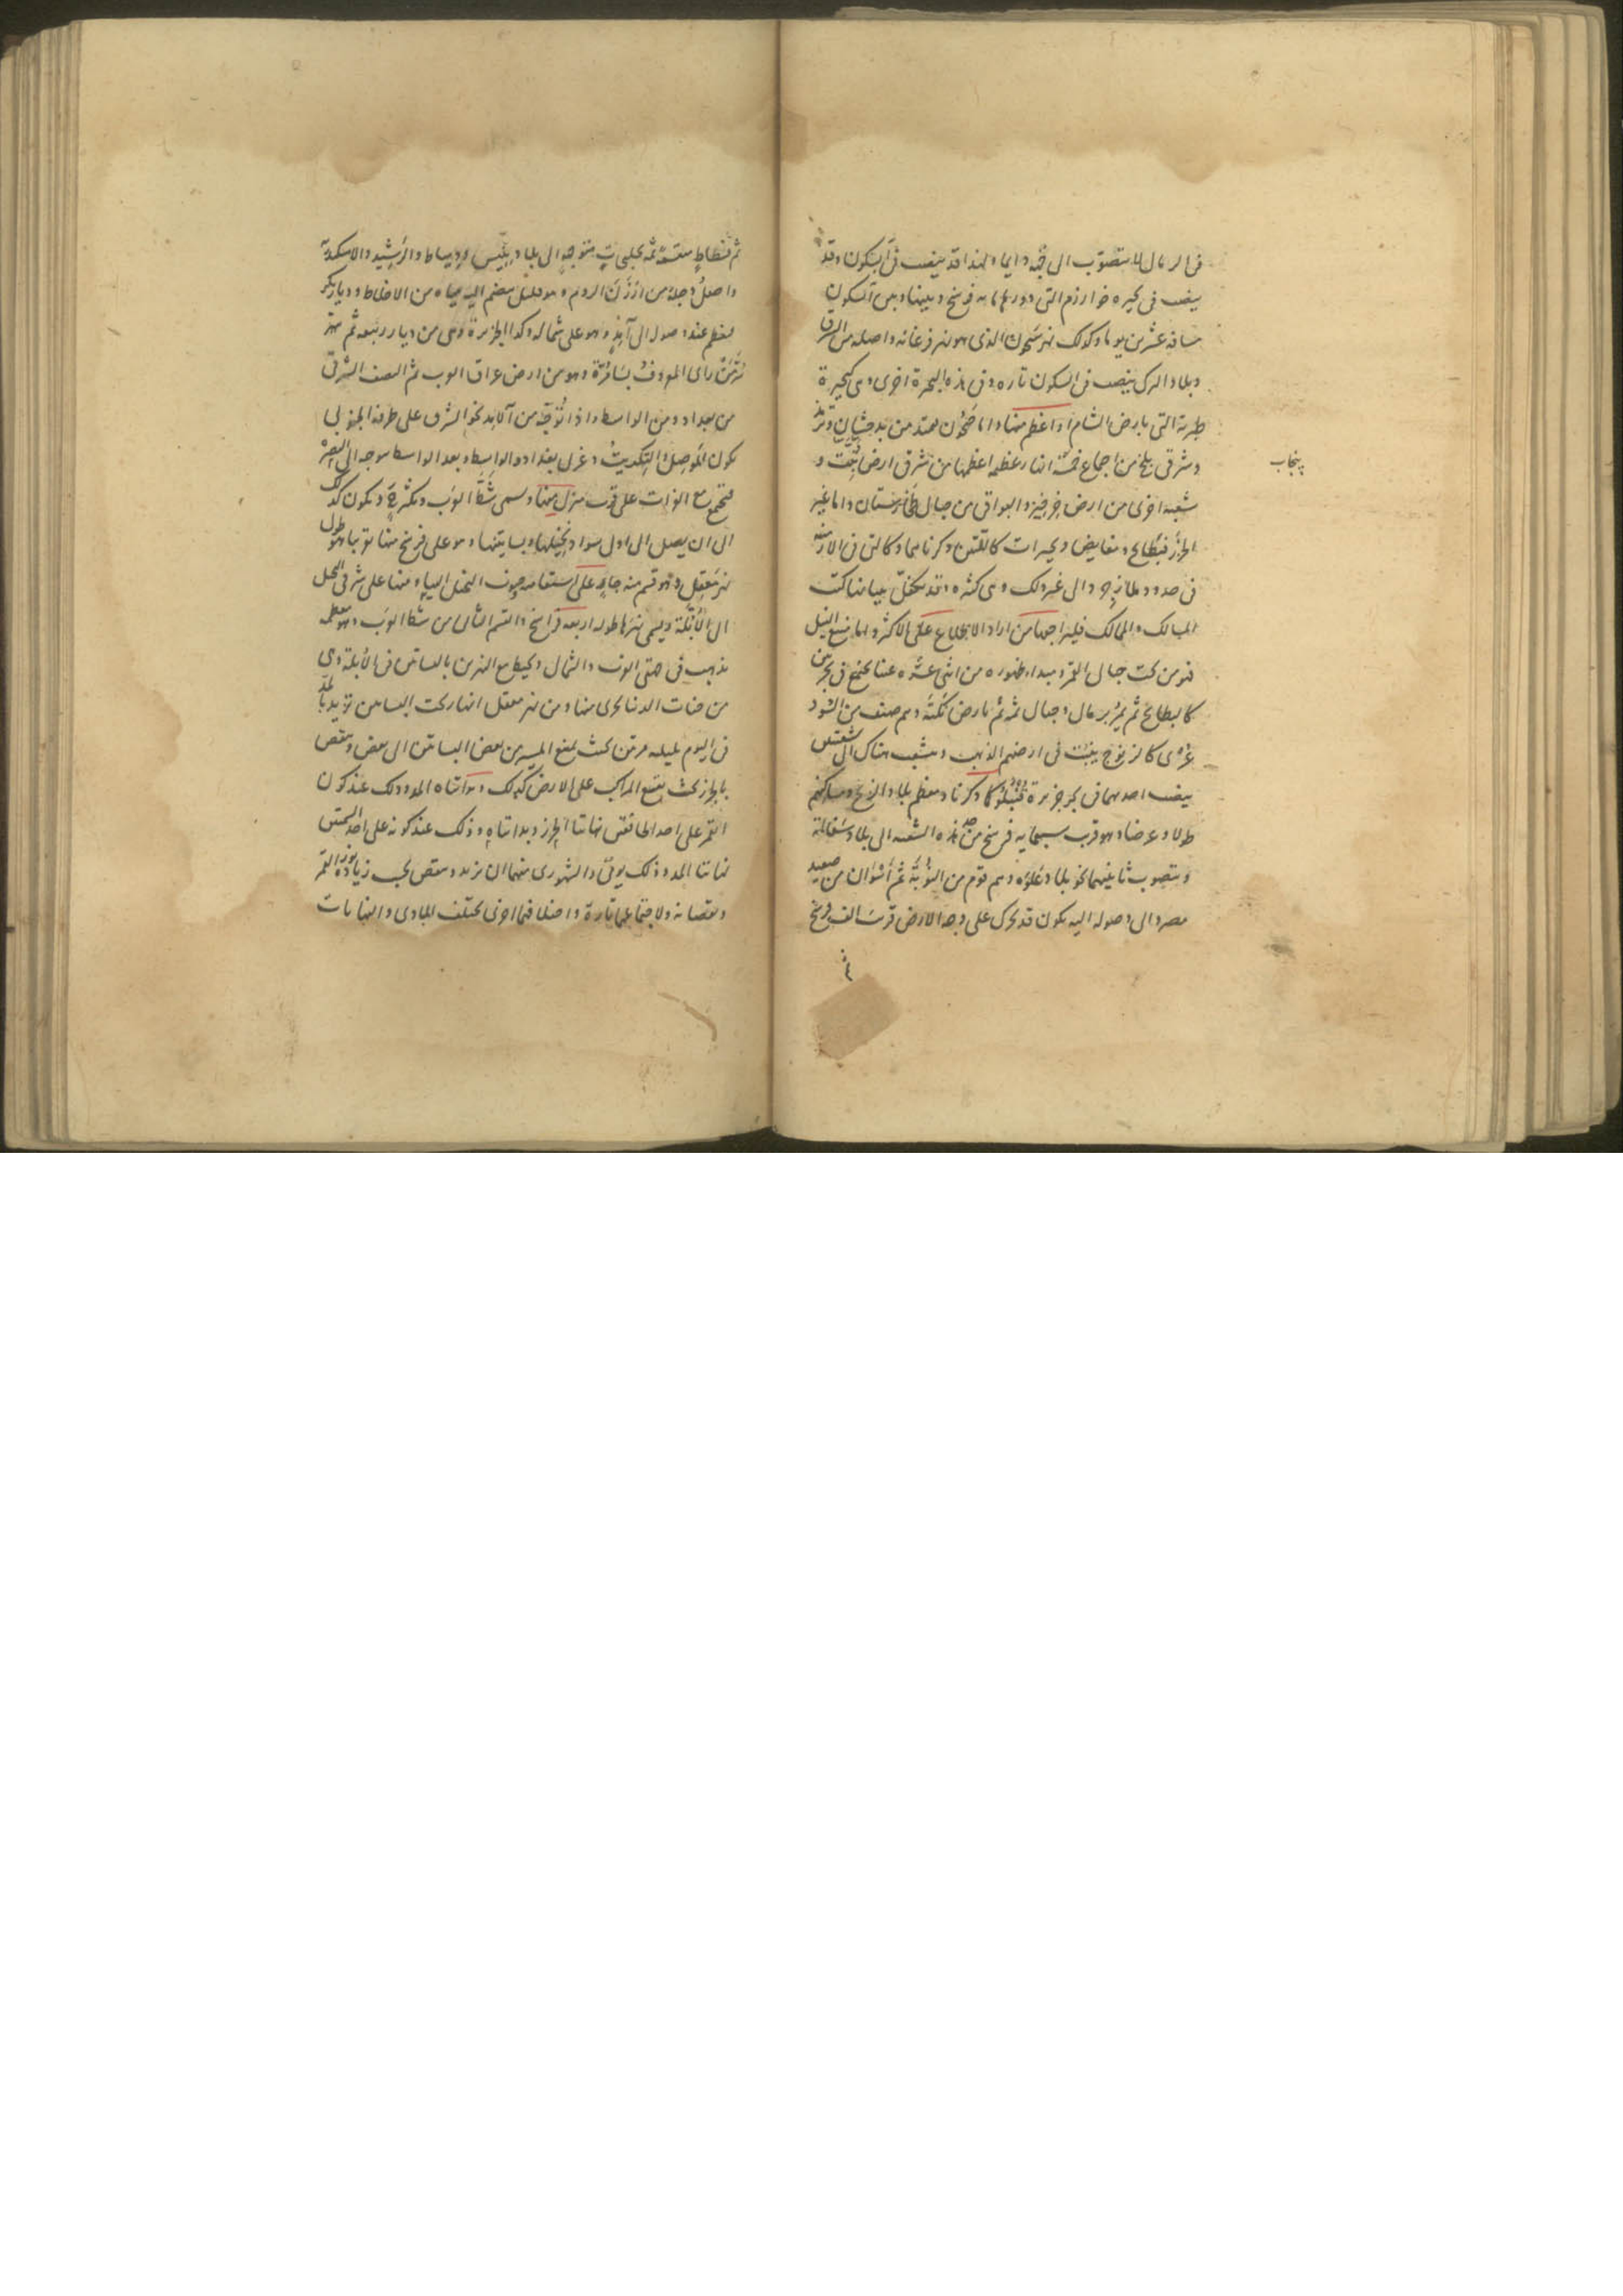 فى الرمال للا يتصوب الى قبة دايما ولهذا قد ينصب فى آبسكون وقد
ينصب فى بحيره خوارزم التى دورها مايه فرسخ وبينها وبين آبسكون
مسافه عشرين يوما وكذلك نهر سيحون الذى هو نهر فرغانه واصله من
وبلاد الترك ينصب فى آبسكون تاره وفى هذه البحرة اخرى وهى كبحيرة
طبرية التى بارض الشام او اعظم منها واما جيحون فيمتد من بدخشان وترمذ
وشرقى بلخ من اجتماع خمسة انهار عظيمه اعظمها من شرقى ارض تبت و
پنجاب
شعبه اخرى من ارض خرخيز والبواقى من جبال طخارستان واما غير
الجزر فبطايح ومغايض وبحيرات كالتين ذكرناهما وكالتى فى الارمنيه
فى حدود طائر الى غير ذلك وهى كثيره وقد تكفل ببيانها كتب
المسالك والممالك فليراجعها من اراد الاطلاع على الاكثر واما منبع النيل
فهو من تحت جبال القمر ومبداء ظهوره من اثنى عشره عينا تجتمع فى بحرتين
كالبطايح ثم يمر برمال وجبال ثمه ثم بارض تكنه وهم صنف من السود
عرى كالزنوج ينبت فى ارضهم الذهب وينشعب هناك الى شعبتين
ينصب احدهما فى بحر جزيرة قنبلو كما ذكرنا ومعظم بلاد الزنج ومساكنهم
طولا وعرضا وهو قرب سبعمايه فرسخ من هذه الشعبه الى بلاد سفالة
ويتصوب ثانيهما نحو بلاد علوه وهم قوم من النوبة ثم اسوان من صعيد
مصر والى وصوله اليه يكون قد تحرك على وجه الارض قرب الف فرسخ
ثم
ثم فسطاط منقسمة ثمه بخلجى متوجهة الى بلاد تنيس ودمياط والرشيد والاسكندرية
واصل دجلة من ارزن الروم وهو قليل ينضم اليه مياه من الاخلاط وديار بكر
فيعظم عند وصوله الى آمد وهو على شماله وكذا الجزيرة وهى من ديار ربيعه ثم بهر
سر من راى المعروف بسامرة وهو من ارض عراق العرب ثم النصف الشرقى
من بغداد ومن الواسط واذا توجه من آمد نحو الشرق على طرفه الجنوبى
يكون الموصل والتكريت وغربى بغداد والواسط وبعد الواسط توجه الى البصرة
فيجتمع مع الفرات على قرب منزل منها ويسمى شط العرب ويكثر ويكون كذلك
الى ان يصل الى اول سواد نخيلها وبساتينها وهو على فرسخ منها تقريبا طول
نهر معقل وهو قسم منه جار على استقامه جنوب النخل اليها ومنها على شرقى النخل
الى الابلة ويسمى نهرها طوله اربعه فراسخ والقسم الثانى من شط العرب وهو معظمه
يذهب فى جهتى العرف والشمال ويحيط مع النهرين بالبساتين فى الابلة وهى
من جنات الدنيا تجرى منها ومن نهر معقل انهار تحت البساتين تزيد بالمد
فى اليوم بليله مرتين بحيث يمنع المسير من بعض البساتين الى بعض وينقص
بالجزر بحيث يقع المراكب على الارض كذلك وابتداه المد وذلك عند كون
القمر على احد الخافقين نهايتا الجزر وبداتاه وذلك عند كونه على احد السمتين
نهايتا المد وذلك يومى والشهورى منهما ان يزيد وينقص بحسب زيادة نور القمر
ونقصانه ولاجتماعهما تارة واختلافهما اخرى يختلف المبادى والنهايات